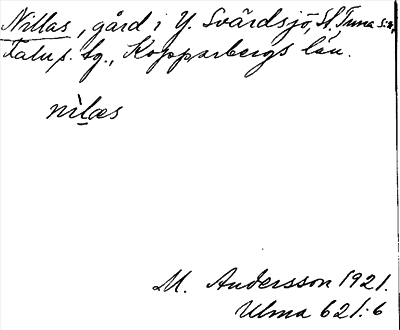 Nillas, gård i Y. Svärdsjö, St. Tuna s:n,
Falu s. tg., Kopparbergs län.
nìlæs
M. Andersson 1921.
Ulma 621:6